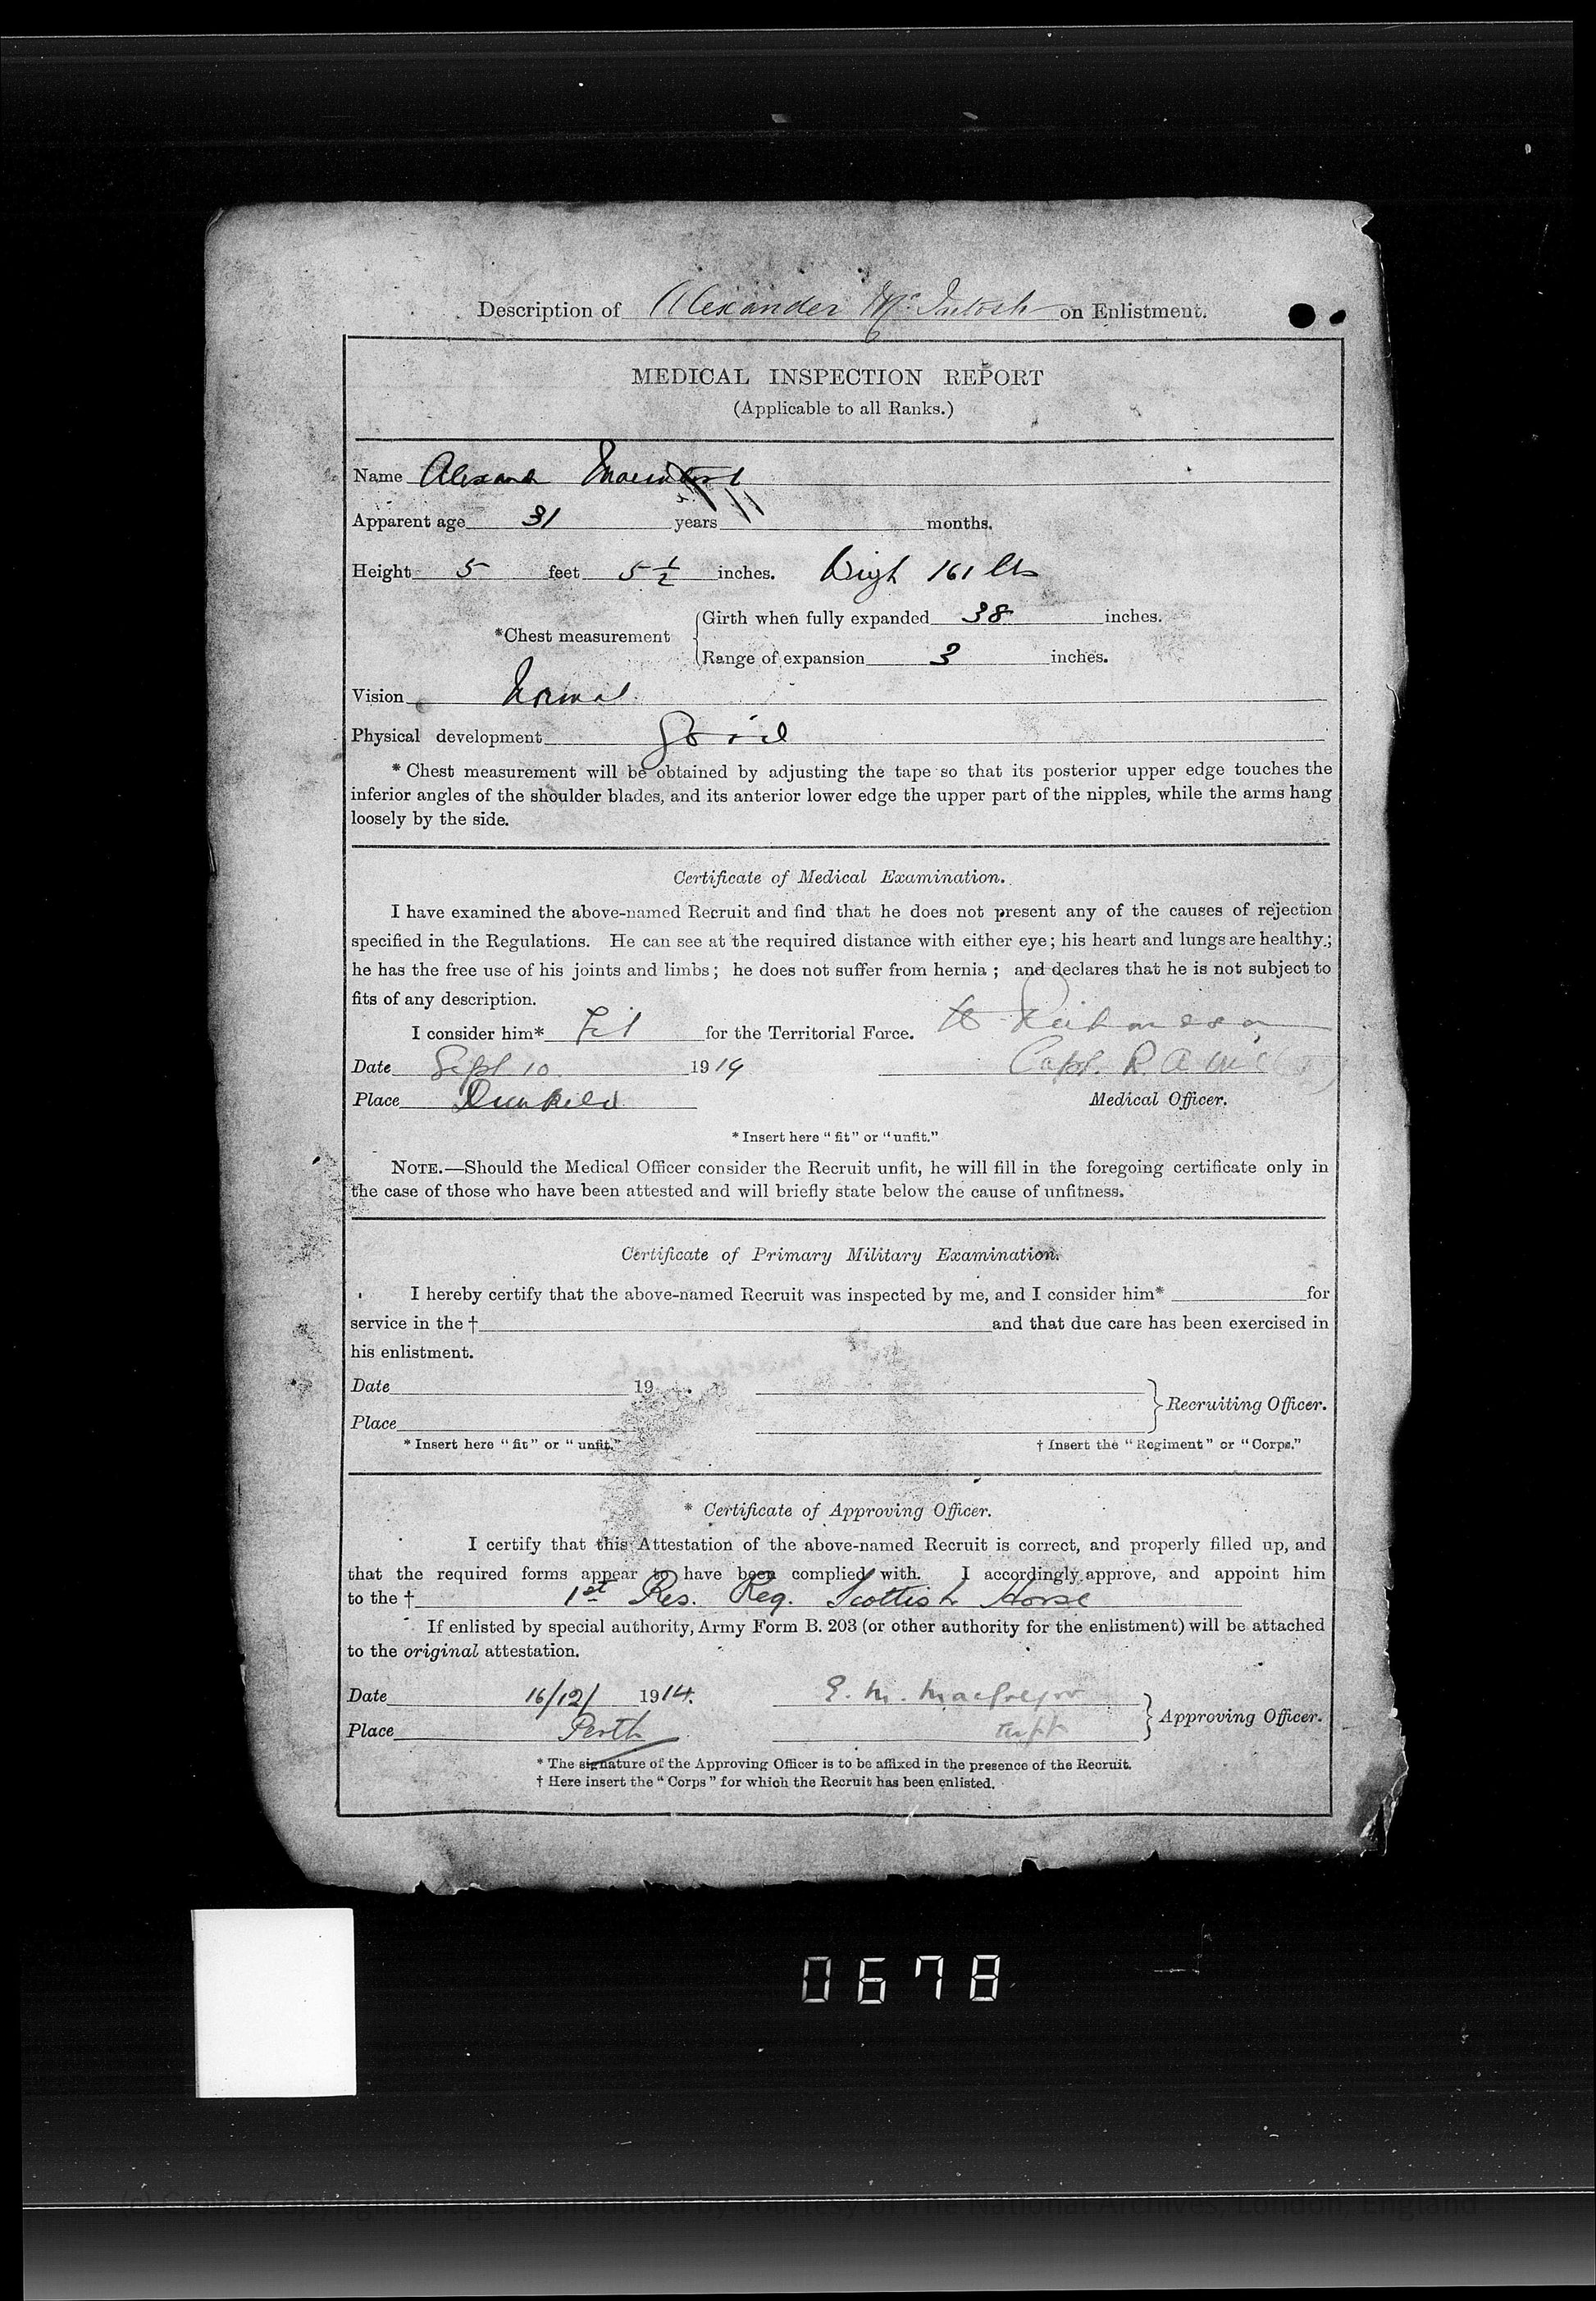 Description of Alexander McIntosh on Enlistment.
MEDICAL INSPECTION REPORT
(Applicable to all Ranks.)
Name
Apparent age 31 years months.
Height 5 feet 5 ½ inches. Weigh 161 lbs
Girth when fully expanded 38 inches.
*Chest measurement
Range of expansion 3 inches.
Vision Normal
Physical development Good
* Chest measurement will be obtained by adjusting the tape so that its posterior upper edge touches the
inferior angles of the shoulder blades, and its anterior lower edge the upper part of the nipples, while the arms hang
loosely by the side.
Certificate of Medical Examination.
I have examined the above-named Recruit and find that he does not present any of the causes of rejection
specified in the Regulations. He can see at the required distance with either eye; his heart and lungs are healthy;
he has the free use of his joints and limbs; he does not suffer from hernia; and declares that he is not subject to
fits of any description.
I consider him* Fit for the Territorial Force.
Date Sept 10 1914 Capt. R.A.M.C (T)
Place Dunkeld Medical Officer.
* Insert here "fit" or "unfit."
NOTE.—Should the Medical Officer consider the Recruit unfit, he will fill in the foregoing certificate only in
the case of those who have been attested and will briefly state below the cause of unfitness.
Certificate of Primary Military Examination.
I hereby certify that the above-named Recruit was inspected by me, and I consider him* for
service in the † and that due care has been exercised in
his enlistment.
Date 19
Recruiting Officer.
Place
* Insert here "fit" or "unfit." † Insert the "Regiment" or "Corps."
* Certificate of Approving Officer.
I certify that this Attestation of the above-named Recruit is correct, and properly filled up, and
that the required forms appear to have been complied with. I accordingly approve, and appoint him
to the † 1st Res. Reg. Scottish Horse
If enlisted by special authority, Army Form B. 203 (or other authority for the enlistment) will be attached
to the original attestation.
Date 16/12/ 1914. E. M. MacGregor
Approving Officer.
Place Perth
* The signature of the Approving Officer is to be affixed in the presence of the Recruit.
† Here insert the "Corps" for which the Recruit has been enlisted.
0678